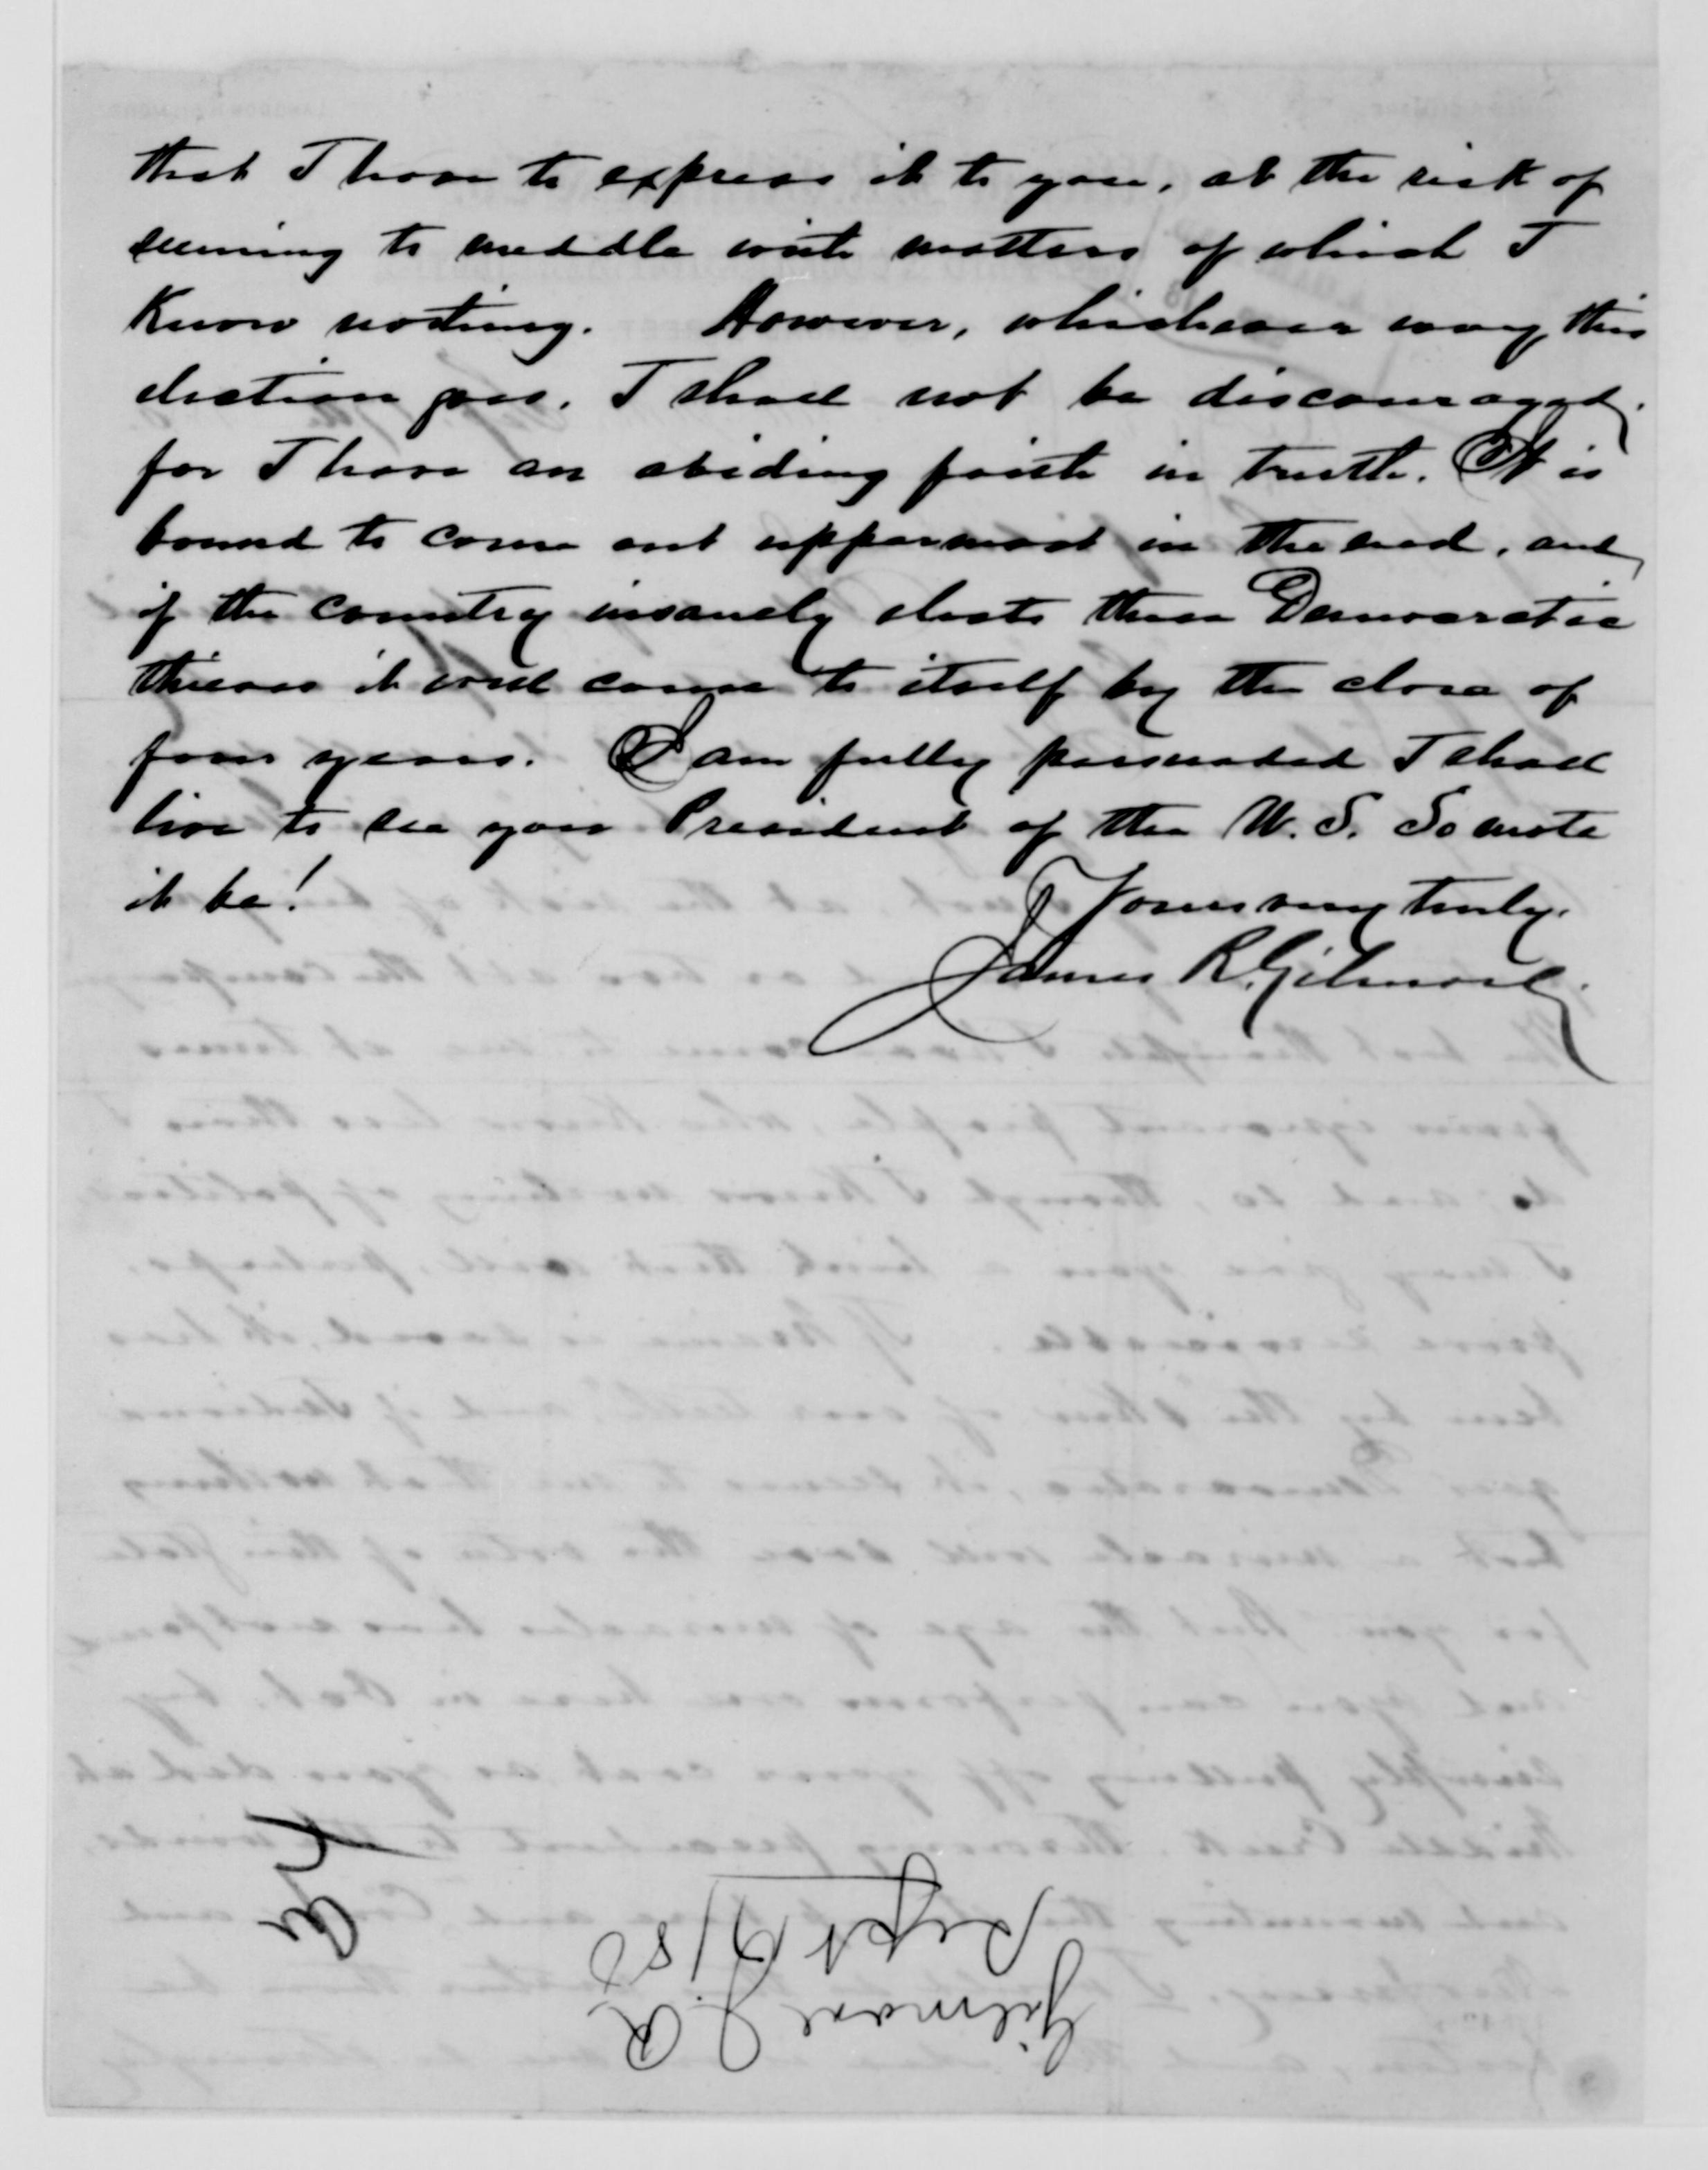 that I have to express it to you, at the risk of
seeming to meddle with matters of which I
Know nothing. However, whichever way this
election goes, I shall not be discouraged,
for I have an abiding faith in truth. It is
bound to come out uppermost in the end, and
if the country insanely elects these Democratic
thieves it will come to itself by the close of
four years. I am fully persuaded I shall
live to see you President of the U. S. So mote
it be!
Yours very truly,
James R. Gilmore.
Gilmore J. R
Sept /80